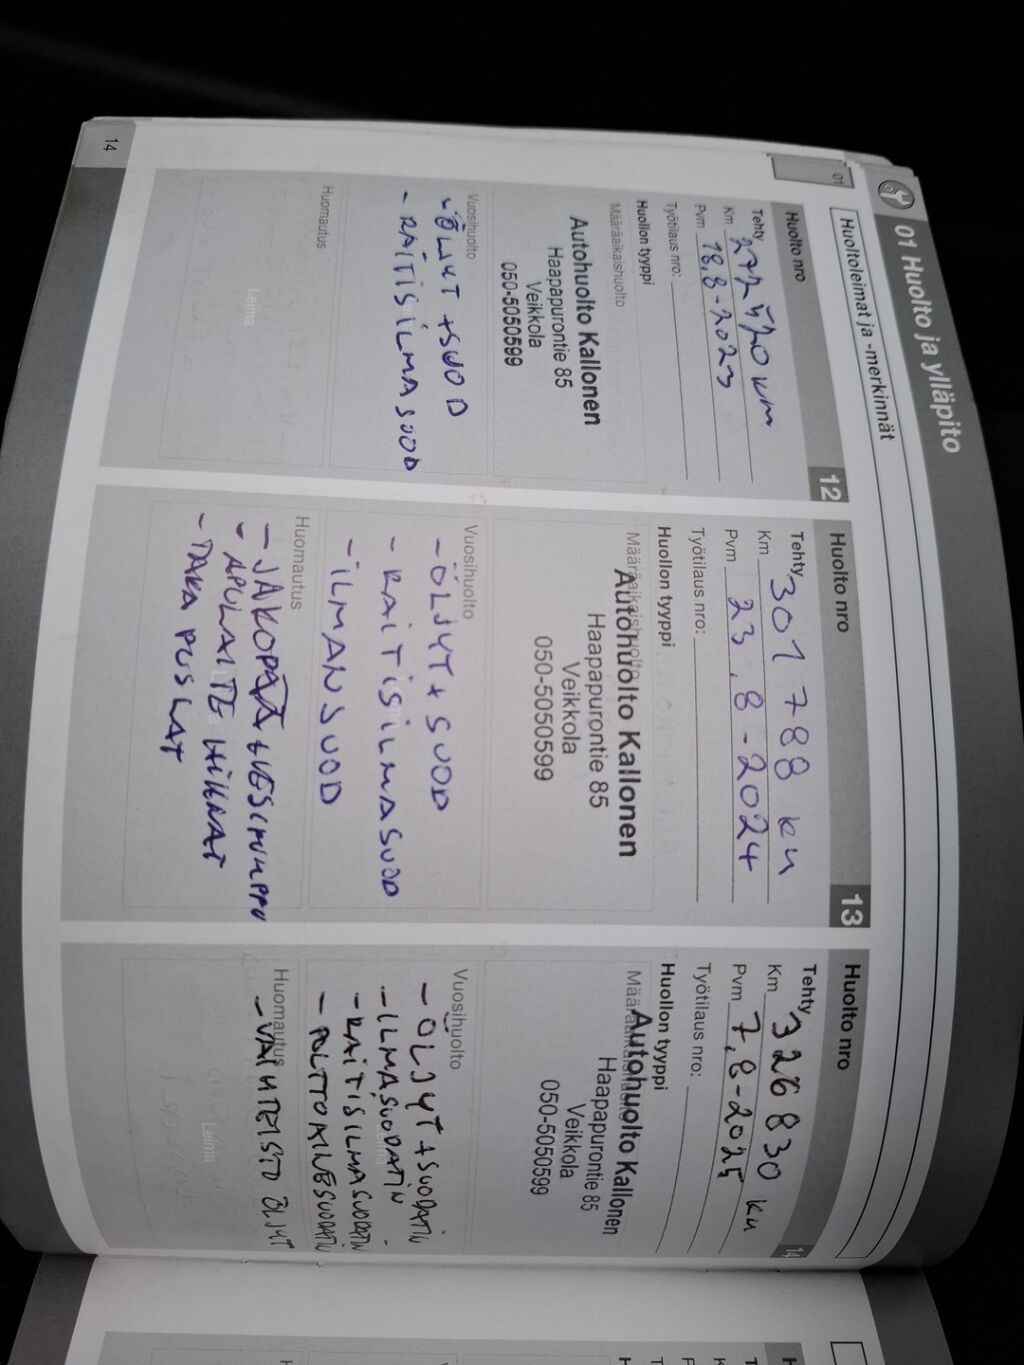 01 Huolto ja ylläpito
Huoltoleimat ja -merkinnät
01
Huolto nro
12
Tehty
Km 272 520 km
Pvm 18.8-2023
Työtilaus nro:
Huollon tyyppi
Määräaikaishuolto
Autohuolto Kallonen
Haapapurontie 85
Veikkola
050-5050599
Vuosihuolto
- ÖLJYT + SUOD
- RAITISILMASUOD
Huomautus
Leima
Huolto nro
13
Tehty
Km 301 788 km
Pvm 23.8-2024
Työtilaus nro:
Huollon tyyppi
Määräaikaishuolto
Autohuolto Kallonen
Haapapurontie 85
Veikkola
050-5050599
Vuosihuolto
- ÖLJYT + SUOD
- RAITISILMASUOD
- ILMANSUOD
Huomautus
- JAKOPÄÄ + VESIPUMPPU
- APULAITE HIHNAT
- TAKA PUSLAT
Huolto nro
14
Tehty
Km 326 830 km
Pvm 7.8-2025
Työtilaus nro:
Huollon tyyppi
Autohuolto Kallonen
Haapapurontie 85
Veikkola
050-5050599
Vuosihuolto
- ÖLJYT + SUODATIN
- ILMASUODATIN
- RAITISILMASUODATIN
- POLTTOAINESUODATIN
Huomautus
- VAIHTEISTO ÖLJYT
Leima
14